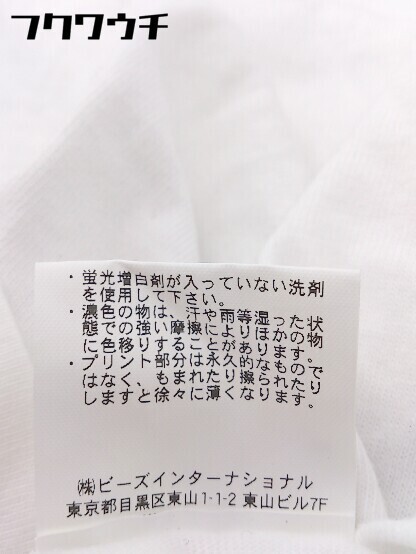 フクワウチ
・蛍光増白剤が入っていない洗剤
を使用して下さい。
・濃色の物は、汗や雨等湿った状
態での強い摩擦によりほかの物
に色移りすることがあります。
・プリント部分は永久的なもので
はなく、もまれたり擦られたり
しますと徐々に薄くなります。
㈱ビーズインターナショナル
東京都目黒区東山1-1-2 東山ビル7F